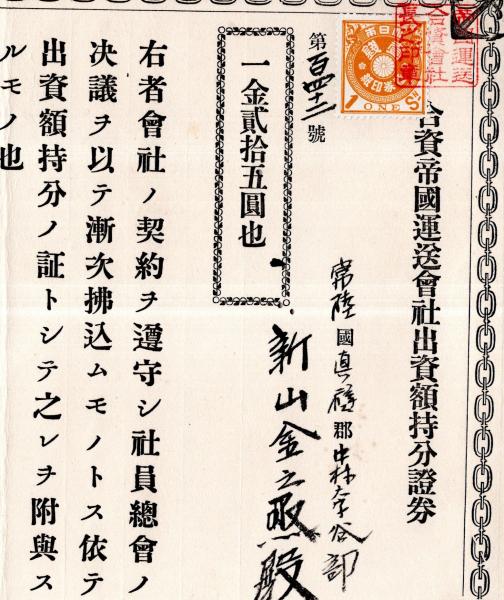 合資帝國運送會社出資額持分證券
第百四十二號
一金貳拾五圓也
常陸國真壁郡中村大字谷部
新山金之殿
右者會社ノ契約ヲ遵守シ社員總會ノ
决議ヲ以テ漸次拂込ムモノトス依テ
出資額持分ノ証トシテ之レヲ附與ス
ルモノ也
合資會社
ONE
1
SN